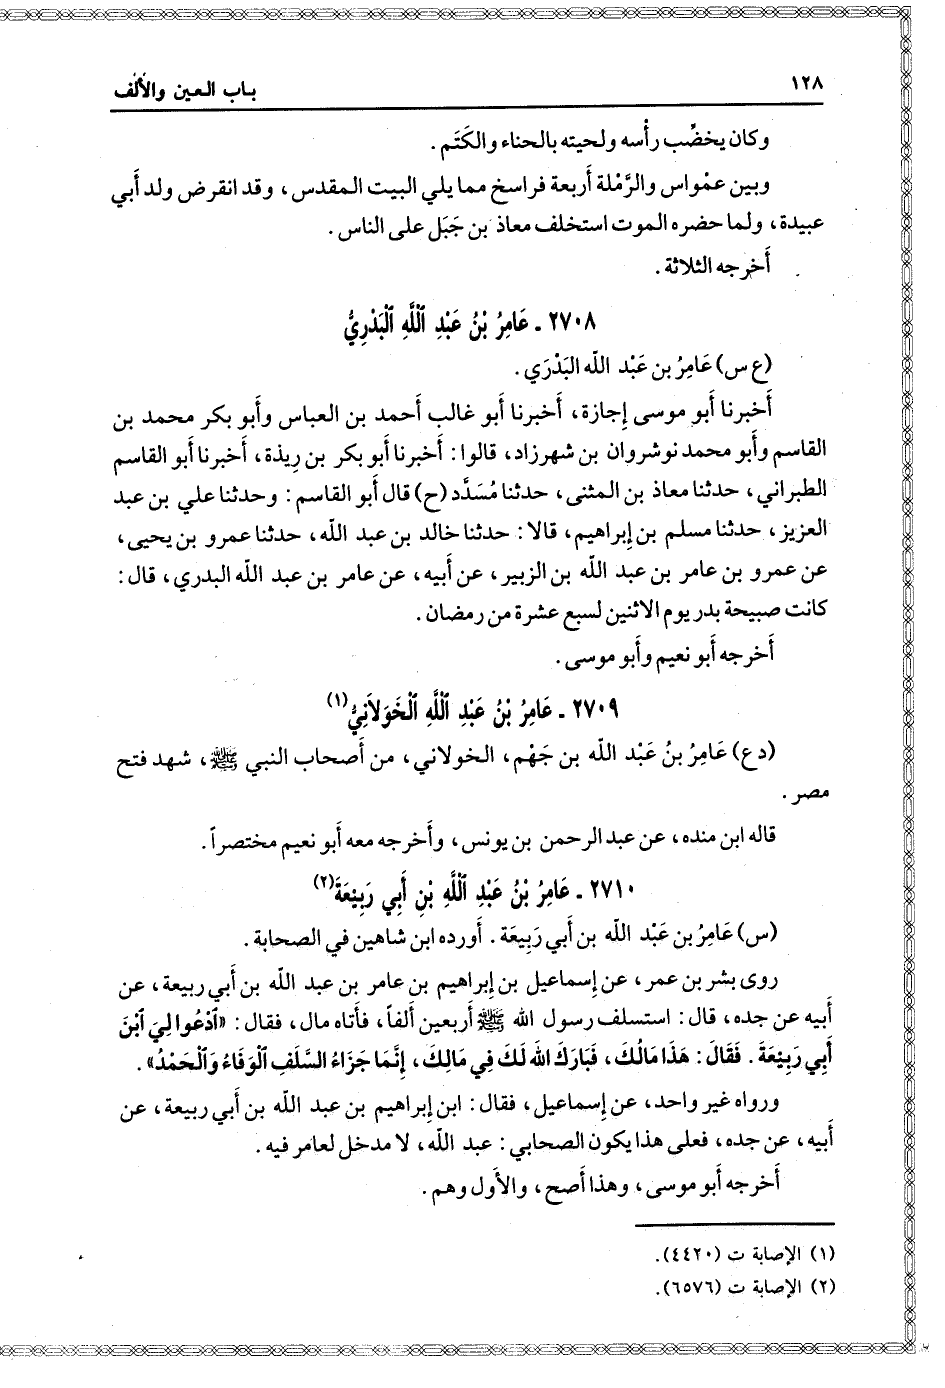 ١٢٨ باب العين والألف
وكان يخضِّب رأسه ولحيته بالحناء والكَتَم.
وبين عمْواس والرَّمْلة أربعة فراسخ مما يلي البيت المقدس، وقد انقرض ولد أبي
عبيدة، ولما حضره الموت استخلف معاذ بن جَبَل على الناس.
أخرجه الثلاثة.
٢٧٠٨ - عَامِرُ بْنُ عَبْدِ ٱللَّهِ ٱلْبَدْرِيُّ
(ع س) عَامِرُ بن عَبْد الله البَدْرَي.
أخبرنا أبو موسى إجازة، أخبرنا أبو غالب أحمد بن العباس وأبو بكر محمد بن
القاسم وأبو محمد نوشروان بن شهرزاد، قالوا: أخبرنا أبو بكر بن رِيذة، أخبرنا أبو القاسم
الطبراني، حدثنا معاذ بن المثنى، حدثنا مُسَدَّد (ح) قال أبو القاسم: وحدثنا علي بن عبد
العزيز، حدثنا مسلم بن إبراهيم، قالا: حدثنا خالد بن عبد الله، حدثنا عمرو بن يحيى،
عن عمرو بن عامر بن عبد الله بن الزبير، عن أبيه، عن عامر بن عبد الله البدري، قال:
كانت صبيحة بدر يوم الاثنين لسبع عشرة من رمضان.
أخرجه أبو نعيم وأبو موسى.
٢٧٠٩ - عَامِرُ بْنُ عَبْدِ ٱللَّهِ ٱلْخَوَلاَنِيُّ(١)
(د ع) عَامِرُ بنُ عَبْد الله بن جَهْم، الخولاني، من أصحاب النبي ﷺ، شهد فتح
مصر.
قاله ابن منده، عن عبد الرحمن بن يونس، وأخرجه معه أبو نعيم مختصراً.
٢٧١٠ - عَامِرُ بْنُ عَبْدِ ٱللَّهِ بْنِ أَبِي رَبِيْعَةَ(٢)
(س) عَامِرُ بن عَبْد الله بن أَبي رَبِيعَة. أورده ابن شاهين في الصحابة.
روى بشر بن عمر، عن إسماعيل بن إبراهيم بن عامر بن عبد الله بن أبي ربيعة، عن
أبيه عن جده، قال: استسلف رسول الله ﷺ أربعين ألفاً، فأتاه مال، فقال: «ٱدْعُوا لِيَ ٱبْنَ
أَبِي رَبِيْعَةَ. فَقَالَ: هَذَا مَالُكَ، فَبَارَكَ اللهُ لَكَ فِي مَالِكَ، إِنَّمَا جَزَاءُ السَّلَفِ ٱلْوَفَاءُ وَٱلْحَمْدُ».
ورواه غير واحد، عن إسماعيل، فقال: ابن إبراهيم بن عبد الله بن أبي ربيعة، عن
أبيه، عن جده، فعلى هذا يكون الصحابي: عبد الله، لا مدخل لعامر فيه.
أخرجه أبو موسى، وهذا أصح، والأول وهم.
(١) الإصابة ت (٤٤٢٠).
(٢) الإصابة ت (٦٥٧٦).